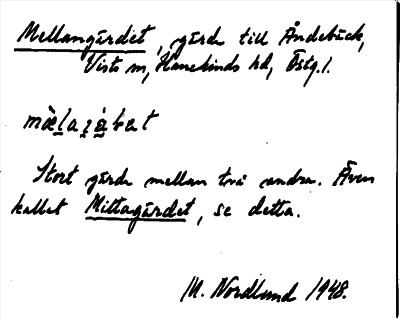 Mellangärdet, gärde till Åndebäck,
Vists sn, Hanekinds hd, Östg.l.
Stort gärde mellan två andra. Även
kallat Mittagärdet, se detta.
M. Nordlund 1948.